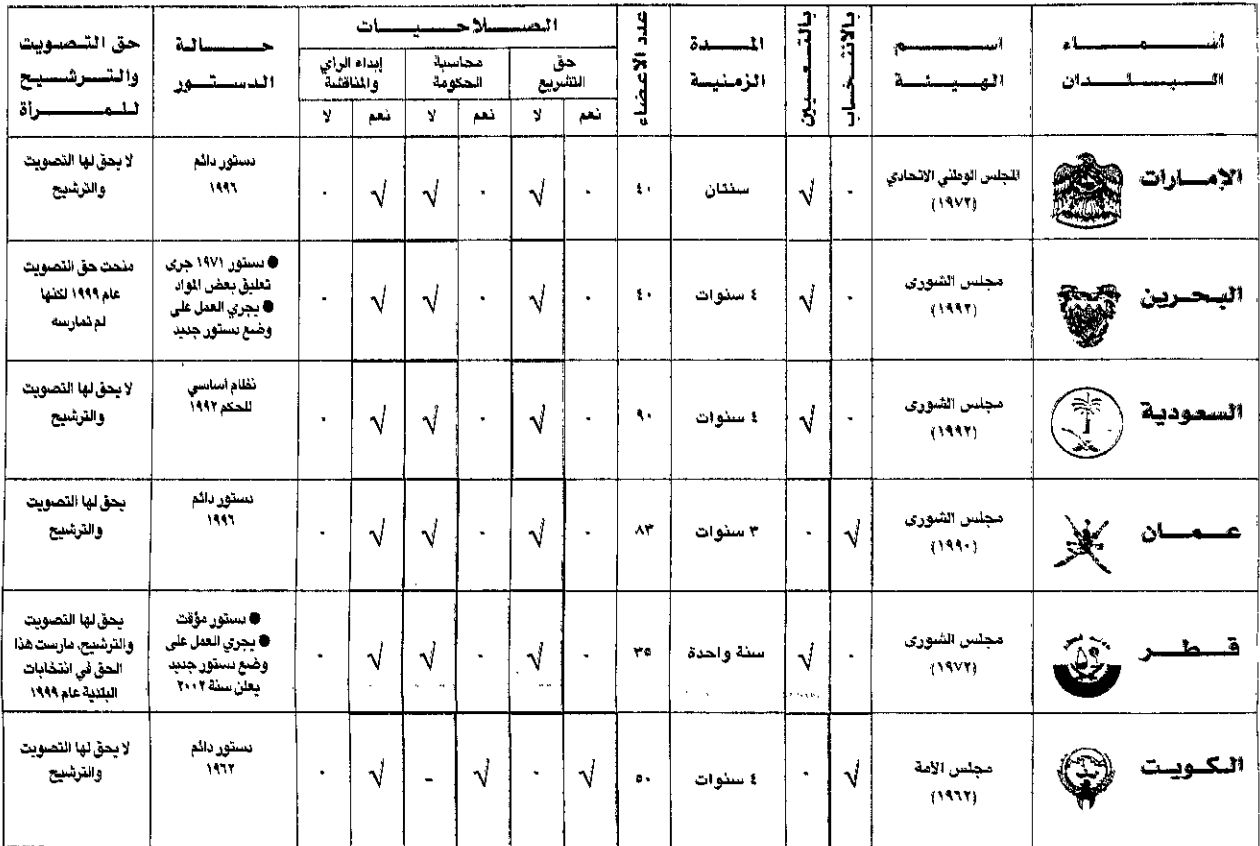 أسماء البلدان
اسم الهيئة
بالانتخاب
بالتعيين
المدة الزمنية
عدد الاعضاء
الصلاحيات
حق التشريع
محاسبة الحكومة
إبداء الراي والمناقشة
نعم لا نعم لا نعم لا
حالة الدستور
حق التصويت والترشيح للمرأة
الإمارات
المجلس الوطني الاتحادي
(١٩٧٢)
٠ √
سنتان
٤٠
٠ √ ٠ √ √ ٠
دستور دائم
١٩٩٦
لا يحق لها التصويت
والترشيح
البحرين
مجلس الشورى
(١٩٩٢)
٠ √
٤ سنوات
٤٠
٠ √ ٠ √ √ ٠
● دستور ١٩٧١ جرى
تعليق بعض المواد
● يجري العمل على
وضع دستور جديد
منحت حق التصويت
عام ١٩٩٩ لكنها
لم تمارسه
السعودية
مجلس الشورى
(١٩٩٢)
٠ √
٤ سنوات
٩٠
٠ √ ٠ √ √ ٠
نظام أساسي
للحكم ١٩٩٢
لا يحق لها التصويت
والترشيح
عمان
مجلس الشورى
(١٩٩٠)
√ ٠
٣ سنوات
٨٣
٠ √ ٠ √ √ ٠
دستور دائم
١٩٩٦
يحق لها التصويت
والترشيح
قطر
مجلس الشورى
(١٩٧٢)
٠ √
سنة واحدة
٣٥
٠ √ ٠ √ √ ٠
● دستور مؤقت
● يجري العمل على
وضع دستور جديد
يعلن سنة ٢٠٠٢
يحق لها التصويت
والترشيح، مارست هذا
الحق في انتخابات
البلدية عام ١٩٩٩
الكويت
مجلس الأمة
(١٩٦٢)
√ ٠
٤ سنوات
٥٠
√ ٠ √ - √ ٠
دستور دائم
١٩٦٢
لا يحق لها التصويت
والترشيح